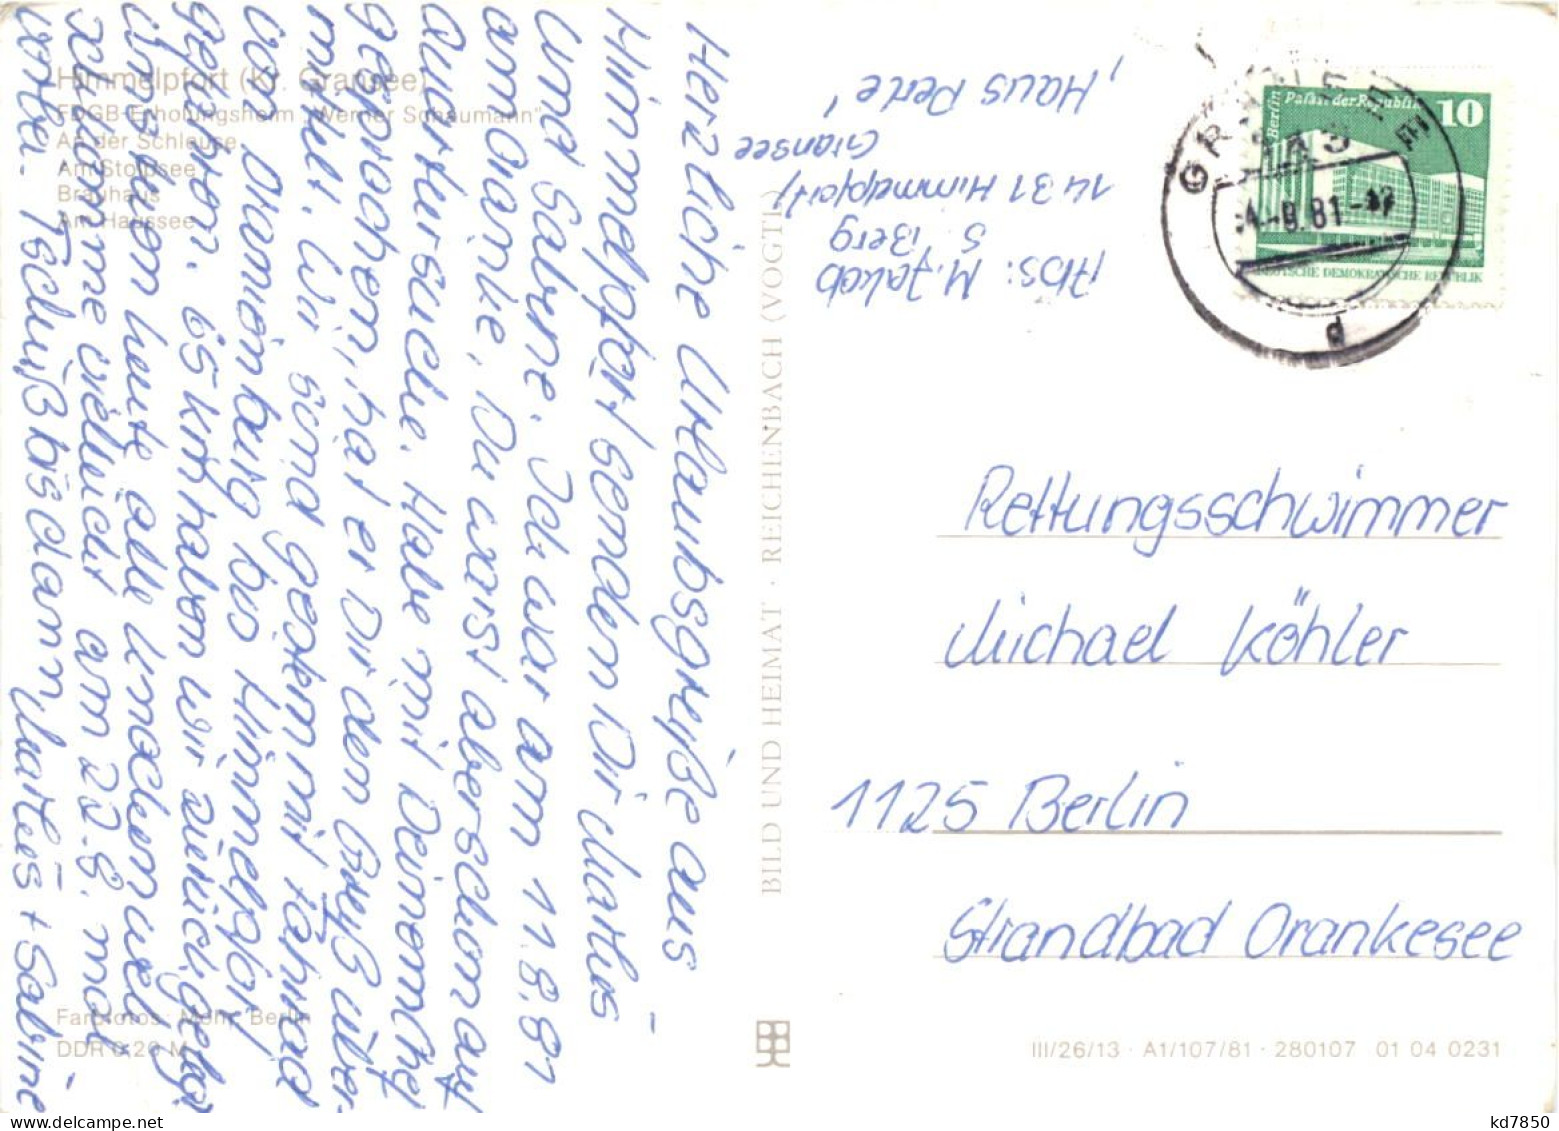 Himmelpfort (Kr. Gransee)
FDGB-Erholungsheim „Werner Schaumann"
An der Schleuse
Am Stolpsee
Brauhaus
Am Haussee
Herzliche Urlaubsgrüße aus
Himmelpfort senden Dir Marlies
und Sabine. Ich war am 11.8.81
am Oranke, Du warst aber schon auf
Quartiersuche. Habe mit Deinem Chef
gesprochen, hat er Dir den Gruß über-
mittelt. Wir sind gestern mit Fahrrad
von Oranienburg bis Himmelpfort
gefahren. 65 km haben wir zurückgelegt
uns tun heute alle Knochen weh
Schwimme vielleicht am 22.8. mal
vorbei. Tschüß bis dann Marlies + Sabine
Farbfotos: Mohr, Berlin
DDR 0,20 M
BILD UND HEIMAT · REICHENBACH (VOGTL)
Abs: M. Jakob
S. Berg
1431 Himmelpfort
Gransee
'Haus Perle'
GRANSEE
1431
81
d
Berlin
Palast der Republik
10
DEUTSCHE DEMOKRATISCHE REPUBLIK
Rettungsschwimmer
Michael Köhler
1125 Berlin
Strandbad Orankesee
III/26/13 · A1/107/81 · 280107 01 04 0231
kd7850